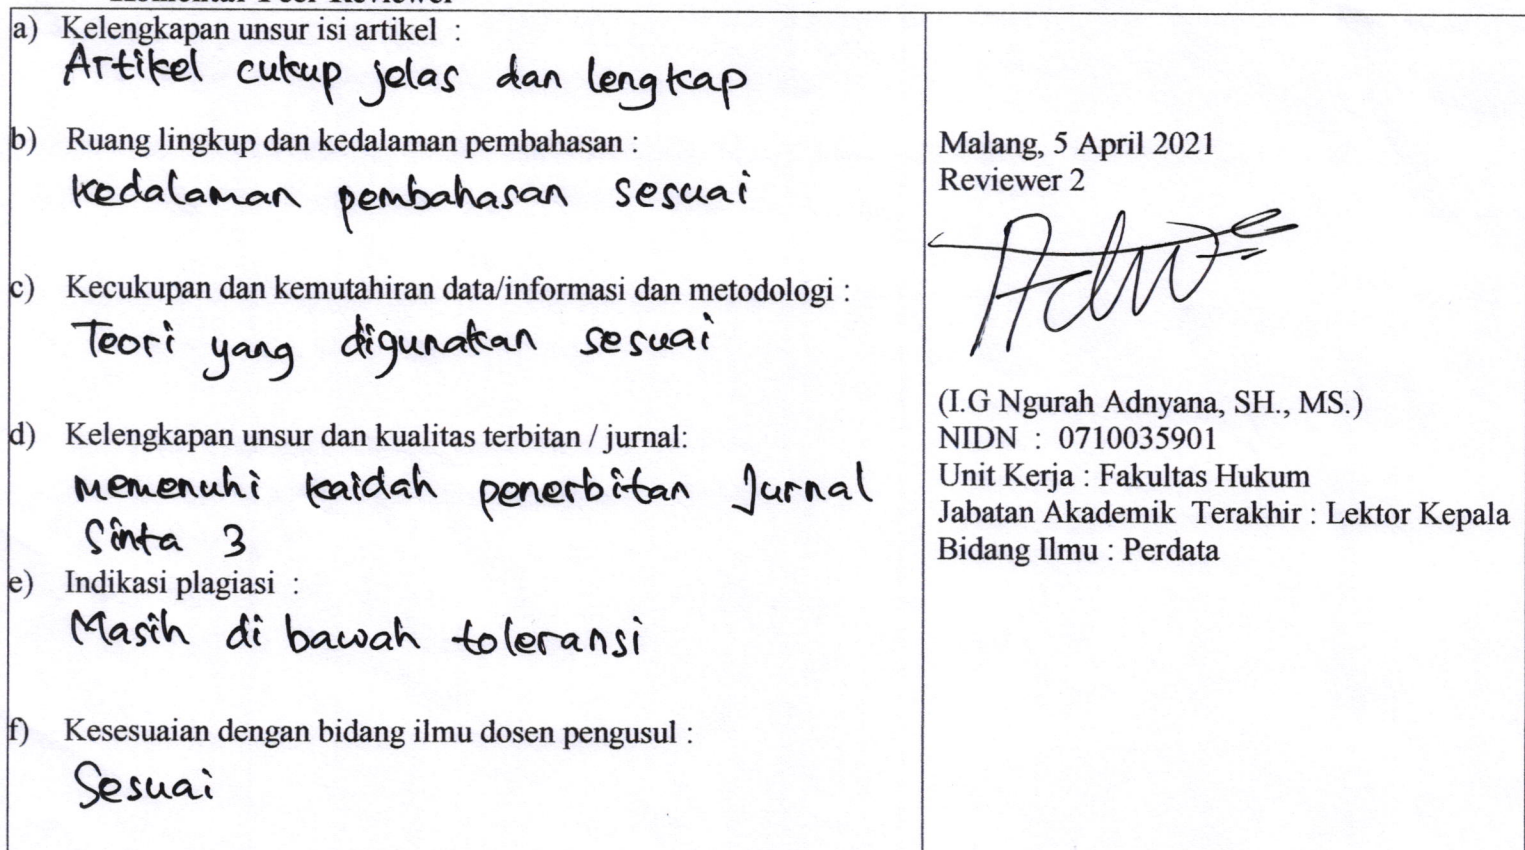 Komentar Peer Reviewer
a) Kelengkapan unsur isi artikel :
Artikel cukup jelas dan lengkap
b) Ruang lingkup dan kedalaman pembahasan :
kedalaman pembahasan sesuai
c) Kecukupan dan kemutahiran data/informasi dan metodologi :
Teori yang digunakan sesuai
d) Kelengkapan unsur dan kualitas terbitan / jurnal:
memenuhi kaidah penerbitan Jurnal
Sinta 3
e) Indikasi plagiasi :
Masih di bawah toleransi
f) Kesesuaian dengan bidang ilmu dosen pengusul :
Sesuai
Malang, 5 April 2021
Reviewer 2
(I.G Ngurah Adnyana, SH., MS.)
NIDN : 0710035901
Unit Kerja : Fakultas Hukum
Jabatan Akademik Terakhir : Lektor Kepala
Bidang Ilmu : Perdata